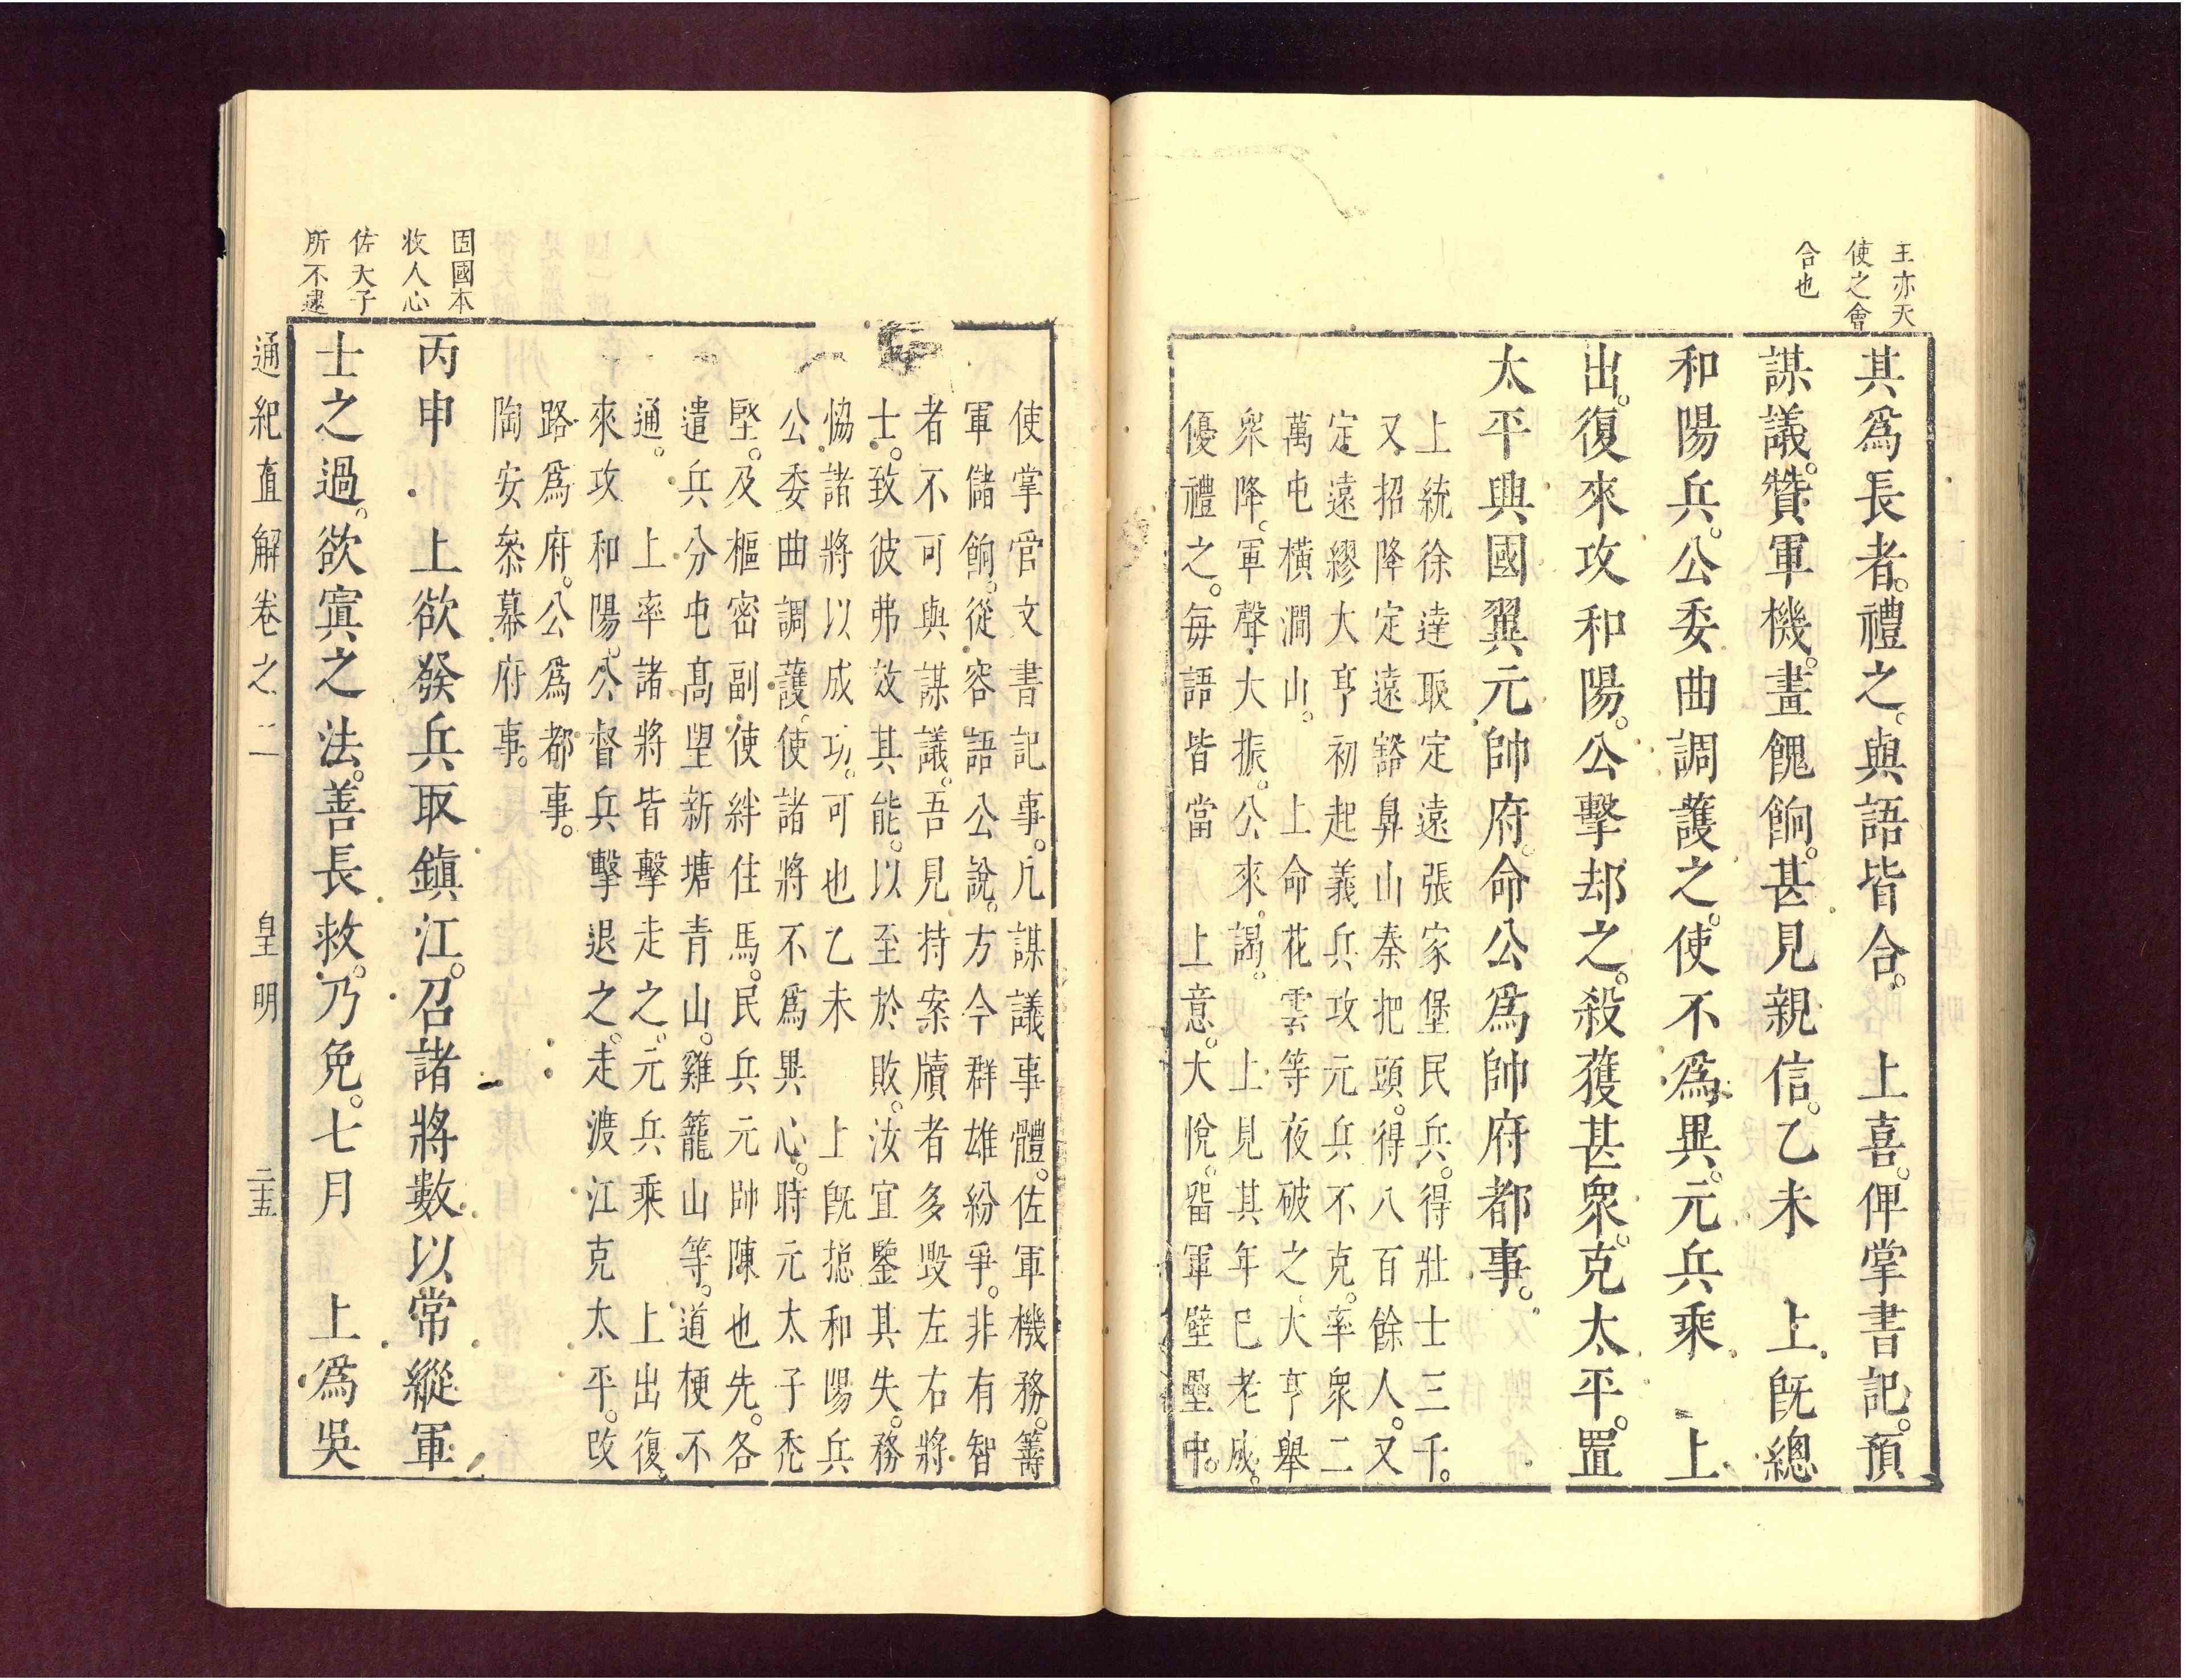 王亦天
使之會
合也
其爲長者。禮之。與語皆合。　上喜。俾掌書記。預
謀議。贊軍機。畫餽餉。甚見親信。乙未　上旣總
和陽兵。公委曲調護之。使不爲異。元兵乘　上
出。復來攻和陽。公擊却之。殺獲甚衆。克太平。置
太平興國翼元帥府。命公爲帥府都事。
上統徐達取定遠張家堡民兵。得壯士三千。
又招降定遠豁鼻山秦把頭。得八百餘人。又
定遠繆大亨初起義兵攻元兵不克。率衆二
萬屯橫澗山。　上命花雲等夜破之、大亨舉
衆降。軍聲大振。公來。謁。　上見其年已老成。
優禮之。每語皆當　上意。大悅。畱軍壁壘中。
使掌管文書記事。凡謀議事體。佐軍機務。籌
軍儲餉。從容語公說。方今群雄紛爭。非有智
者不可與謀議。吾見持案牘者多毀左右將
士。致彼弗效其能。以至於敗。汝宜鑒其失。務
恊諸將以成功。可也乙未　上旣摠和陽兵
公委曲調護。使諸將不爲異心。時元太子禿
堅。及樞密副使絆住馬。民兵元帥陳也先。各
遣兵分屯高朢新塘靑山。雞籠山等。道梗不
通。　上率諸將皆擊走之。元兵乘　上出復。
來攻和陽。公督兵擊退之。走渡江克太平。改
路爲府。公爲都事。
陶安叅幕府事。
固國本
收人心
佐天子
所不逮
丙申　上欲發兵取鎭江。召諸將數以常縱軍
士之過。欲寘之法。善長救。乃免。七月　上爲吳
通紀直解卷之二　皇明　二五